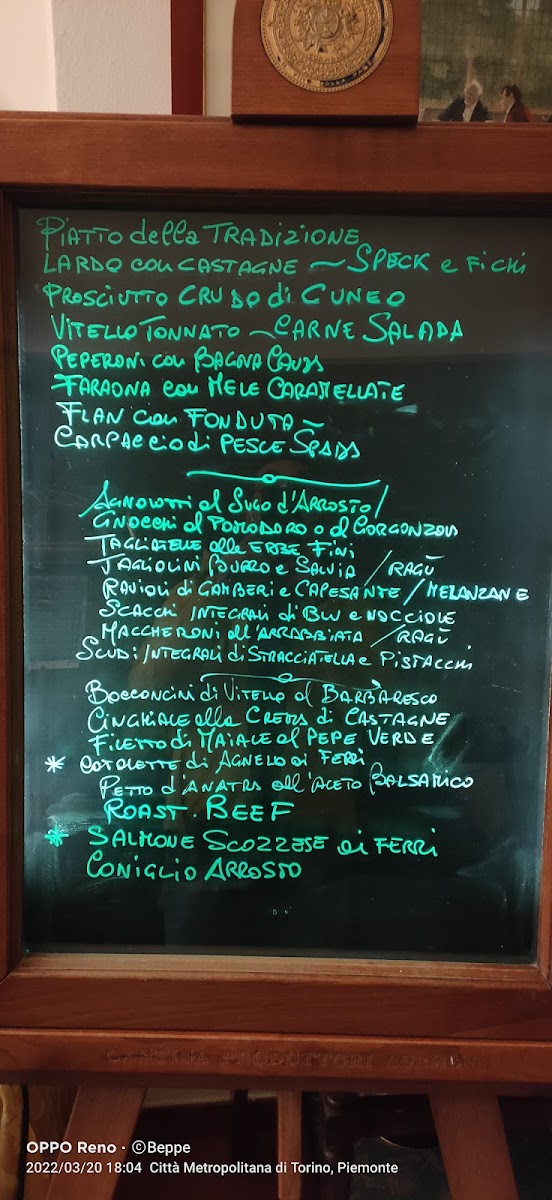 PIATTO della TRADIZIONE
LARDO con CASTAGNE ~ SPECK e FICHI
PROSCIUTTO CRUDO di CUNEO
VITELLO TONNATO ~ CARNE SALADA
PEPERONI con BAGNA CAUDA
FARAONA con MELE CARAMELLATE
FLAN con FONDUTA ~
CARPACCIO di PESCE SPADA
AGNOLOTTI al SUGO d'ARROSTO/
GNOCCHI al POMODORO o al GORGONZOLA
TAGLIATELLE alle ERBE FINI
TAGLIOLINI BURRO e SALVIA / RAGÙ
RAVIOLI di GAMBERI e CAPESANTE / MELANZANE
SCACCHI INTEGRALI di BLU e NOCCIOLE
MACCHERONI all'ARRABBIATA / RAGÙ
SCUDI INTEGRALI di STRACCIATELLA e PISTACCHI
BOCCONCINI di VITELLO al BARBARESCO
CINGHIALE alla CREMA di CASTAGNE
FILETTO di MAIALE al PEPE VERDE
* COTOLETTE di AGNELLO ai FERRI
PETTO d'ANATRA all'ACETO BALSAMICO
ROAST. BEEF
* SALMONE SCOZZESE ai FERRI
CONIGLIO ARROSTO
CANTINA PRODUTTORI
OPPO Reno · ©Beppe
2022/03/20 18:04 Città Metropolitana di Torino, Piemonte